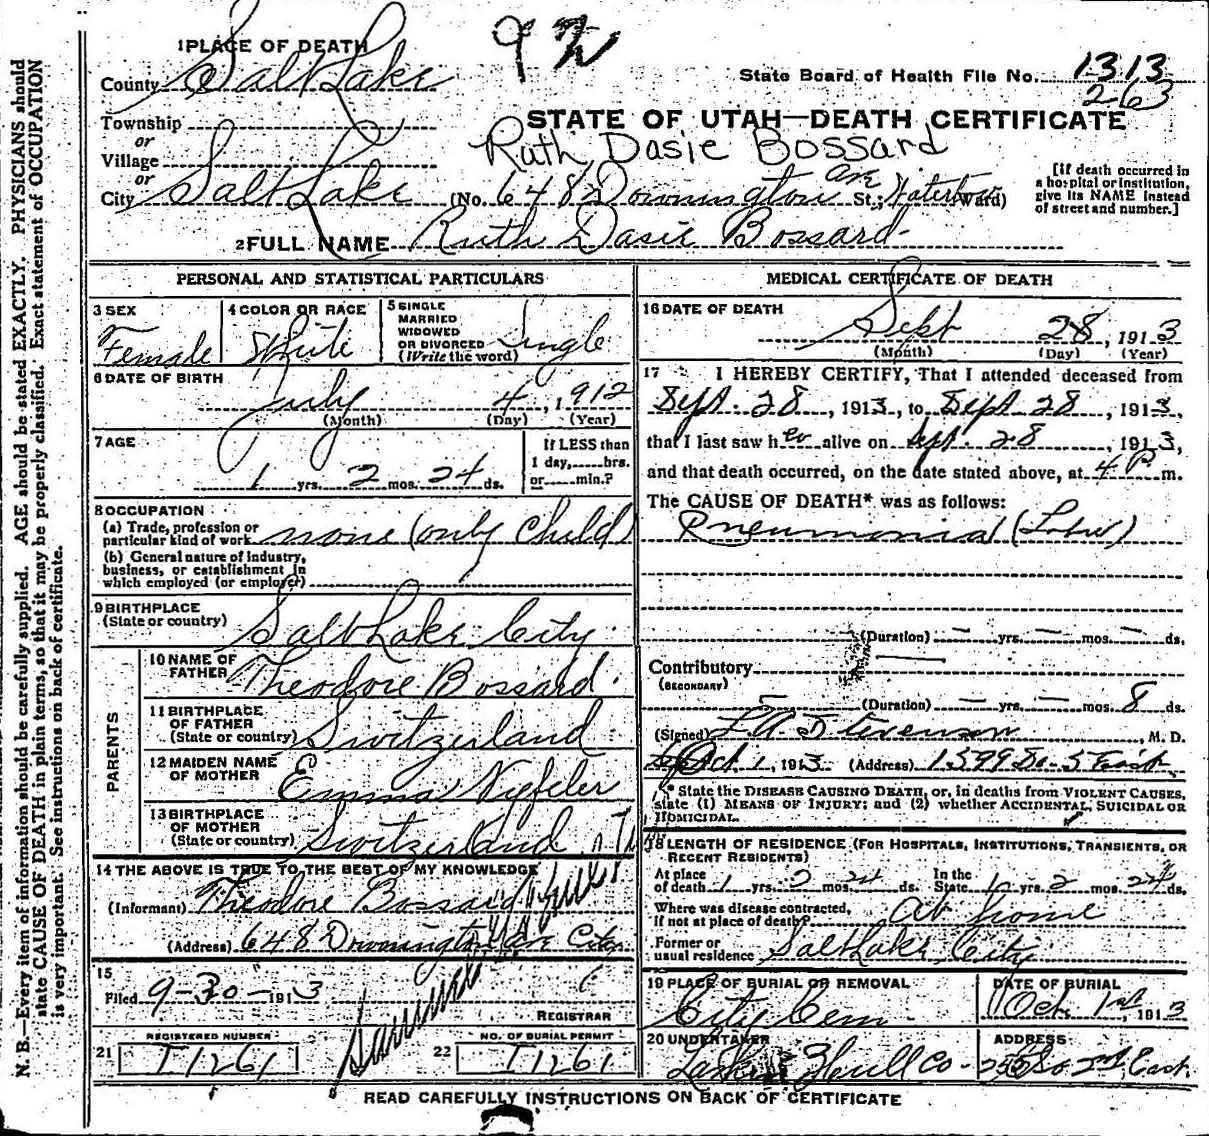 92
1 PLACE OF DEATH
County Salt Lake
State Board of Health File No. 1313
263
Township
or
Village
or
City Salt Lake
STATE OF UTAH—DEATH CERTIFICATE
Ruth Dasie Bossard
(No. 648 Downington Ave St.; Ward)
[If death occurred in
a hospital or institution,
give its NAME instead
of street and number.]
2 FULL NAME Ruth Dasie Bossard
PERSONAL AND STATISTICAL PARTICULARS
3 SEX
Female
4 COLOR OR RACE
White
5 SINGLE
MARRIED
WIDOWED
OR DIVORCED
(Write the word)
Single
6 DATE OF BIRTH
July 4, 1912
(Month) (Day) (Year)
7 AGE
1 yrs. 2 mos. 24 ds.
If LESS than
1 day,......hrs.
or......min.?
8 OCCUPATION
(a) Trade, profession or
particular kind of work none (only child)
(b) General nature of industry,
business, or establishment in
which employed (or employer)
9 BIRTHPLACE
(State or country) Salt Lake City
PARENTS
10 NAME OF
FATHER Theodore Bossard
11 BIRTHPLACE
OF FATHER
(State or country) Switzerland
12 MAIDEN NAME
OF MOTHER Emma Nyfeler
13 BIRTHPLACE
OF MOTHER
(State or country) Switzerland
14 THE ABOVE IS TRUE TO THE BEST OF MY KNOWLEDGE
(Informant) Theodore Bossard
(Address) 648 Downington Ave City
15
Filed 9-30-1913
REGISTRAR
REGISTERED NUMBER
21 I1261
NO. OF BURIAL PERMIT
22 I1261
MEDICAL CERTIFICATE OF DEATH
16 DATE OF DEATH
Sept 28, 1913
(Month) (Day) (Year)
17 I HEREBY CERTIFY, That I attended deceased from
Sept. 28, 1913, to Sept 28, 1913,
that I last saw her alive on Sept. 28, 1913,
and that death occurred, on the date stated above, at 4 P m.
The CAUSE OF DEATH* was as follows:
Pneumonia (Lobar)
(Duration) — yrs. — mos. — ds.
Contributory
(SECONDARY)
(Duration) — yrs. — mos. 8 ds.
(Signed) L.A. Stevenson, M. D.
Oct 1, 1913 (Address) 1399 So. 5 East
* State the DISEASE CAUSING DEATH, or, in deaths from VIOLENT CAUSES,
state (1) MEANS OF INJURY; and (2) whether ACCIDENTAL, SUICIDAL OR
HOMICIDAL.
18 LENGTH OF RESIDENCE (FOR HOSPITALS, INSTITUTIONS, TRANSIENTS, OR
RECENT RESIDENTS)
At place
of death 1 yrs. 2 mos. 24 ds. In the
State 1 yrs. 2 mos. 24 ds.
Where was disease contracted,
if not at place of death? At home
Former or
usual residence Salt Lake City
19 PLACE OF BURIAL OR REMOVAL
City Cem
DATE OF BURIAL
Oct. 1st, 1913
20 UNDERTAKER
Larkin Hull Co
ADDRESS
So 2nd East
READ CAREFULLY INSTRUCTIONS ON BACK OF CERTIFICATE
N. B.—Every item of information should be carefully supplied. AGE should be stated EXACTLY. PHYSICIANS should
state CAUSE OF DEATH in plain terms, so that it may be properly classified. Exact statement of OCCUPATION
is very important. See instructions on back of certificate.